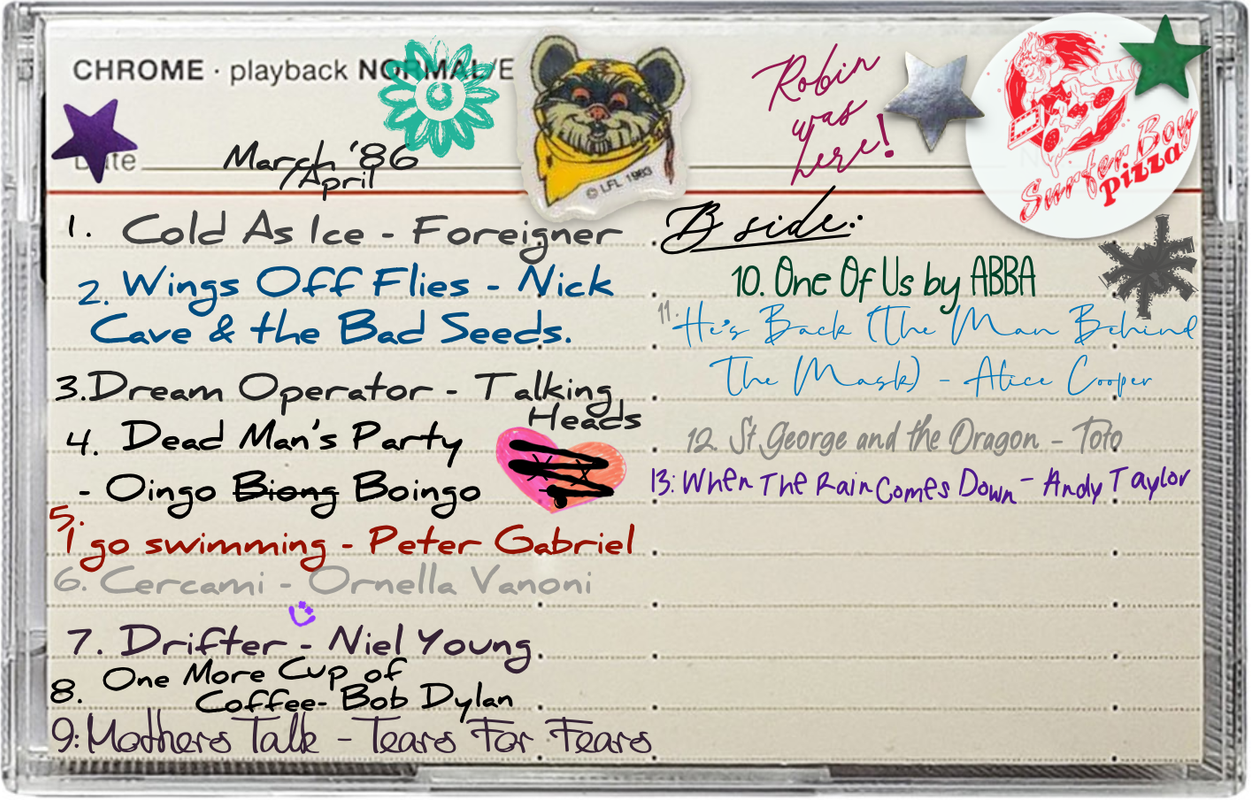 CHROME · playback NORMAL/E
Date
March '86
/April
© LFL 1983
Robin
was
here!
Surfer Boy
Pizza
1. Cold As Ice - Foreigner
2. Wings Off Flies - Nick
Cave & the Bad Seeds.
3.Dream Operator - Talking
Heads
4. Dead Man's Party
- Oingo Biong Boingo
5.
I go swimming - Peter Gabriel
6. Cercami - Ornella Vanoni
7. Drifter - Niel Young
8. One More Cup of
Coffee- Bob Dylan
9:Mothers Talk - Tears For Fears
B side:
10. One Of Us by ABBA
11. He's Back (The Man Behind
The Mask) - Alice Cooper
12. St.George and the Dragon - Toto
13: When The Rain Comes Down - Andy Taylor